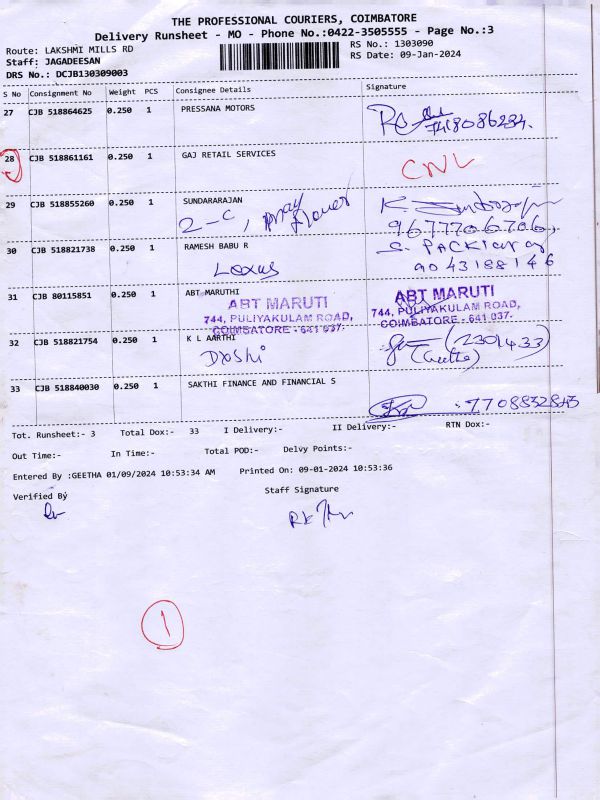 THE PROFESSIONAL COURIERS, COIMBATORE
Delivery Runsheet - MO - Phone No.:0422-3505555 - Page No.:3
Route: LAKSHMI MILLS RD
RS No.: 1303090
Staff: JAGADEESAN
RS Date: 09-Jan-2024
DRS No.: DCJB130309003
S No Consignment No Weight PCS Consignee Details Signature
27 CJB 518864625 0.250 1 PRESSANA MOTORS
7418086234.
28 CJB 518861161 0.250 1 GAJ RETAIL SERVICES
CNL
29 CJB 518855260 0.250 1 SUNDARARAJAN
2-C,
9677706706,
30 CJB 518821738 0.250 1 RAMESH BABU R
Lexus
9043188146
31 CJB 80115851 0.250 1 ABT MARUTHI
ABT MARUTI
744, PULIYAKULAM ROAD,
COIMBATORE - 641 037.
ABT MARUTI
744, PULIYAKULAM ROAD,
COIMBATORE - 641 037.
32 CJB 518821754 0.250 1 K L AARTHI
33 CJB 518840030 0.250 1 SAKTHI FINANCE AND FINANCIAL S
Tot. Runsheet:- 3 Total Dox:- 33 I Delivery:- II Delivery:- RTN Dox:-
Out Time:- In Time:- Total POD:- Delvy Points:-
Entered By :GEETHA 01/09/2024 10:53:34 AM Printed On: 09-01-2024 10:53:36
Verified By Staff Signature
1